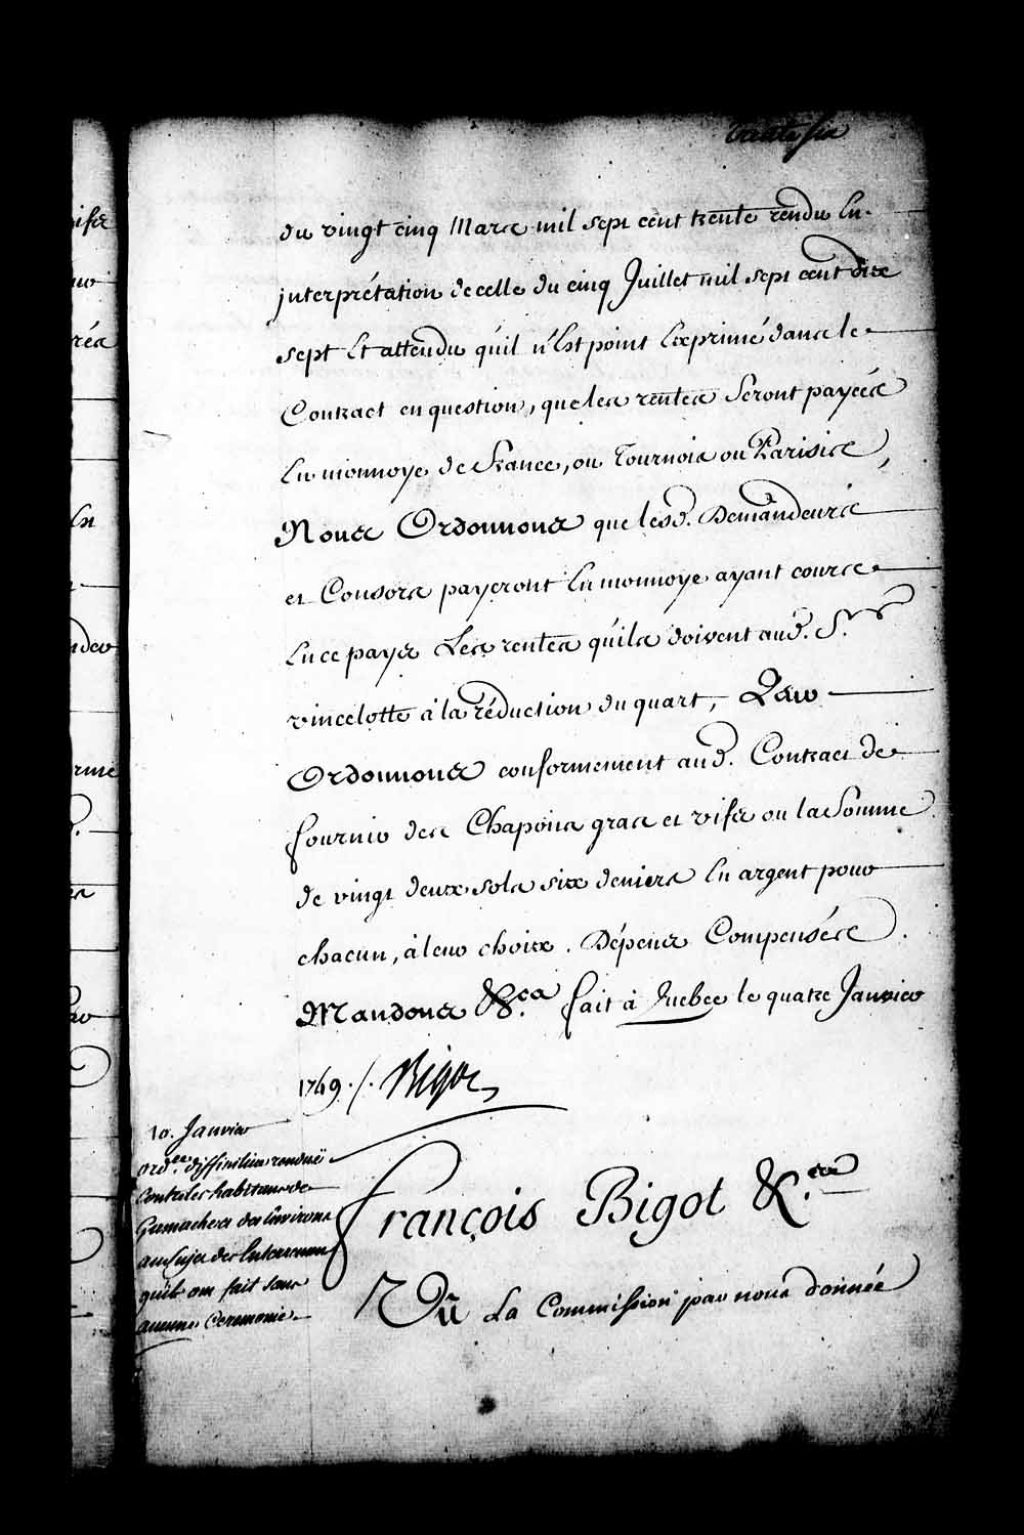 trente six
du vingt cinq Mars mil sept cent trente rendu En
interprétation de celle du cinq Juillet mil sept cent dix
sept Et attendu qu'il n'Est point Exprimé dans le
Contract en question, que les rentes Seront payées
En monnoye de France, ou Tournois ou Parisis,
Nous Ordonnons que lesd. Demandeurs
et Consors payeront En monnoye ayant cours
En ce payis Les rentes qu'ils doivent aud. S.r
vincelotte à la réduction du quart, Leur
Ordonnons conformement aud. Contract de
fournir des Chapons gras et vifs ou la Somme
de vingt deux sols six deniers En argent pour
chacun, à leur choix. Dépens Compensés.
Mandons &.ca fait à Quebec le quatre Janvier
1749. /. Bigot
10. Janvier
ord.ce diffinitive renduë
Contre les habitans de
Gamaches des Environs
au Sujet des Enterremens
qu'ils ont fait sans
aucune Ceremonie
François Bigot &.ca
Vû La Commission par nous donnée